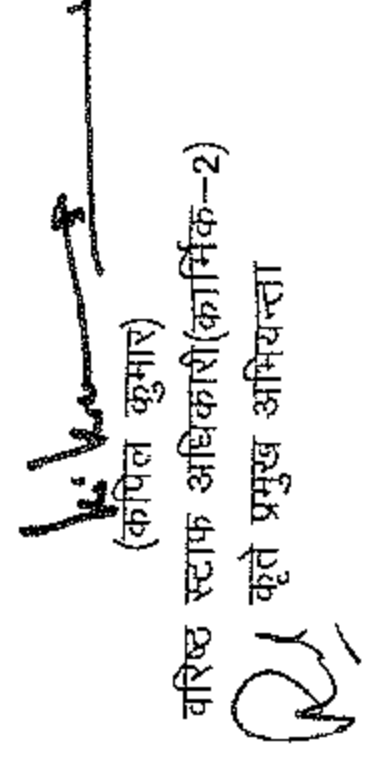 (कपिल कुमार)
वरिष्ठ स्टाफ अधिकारी(कार्मिक-2)
कृते प्रमुख अभियन्ता